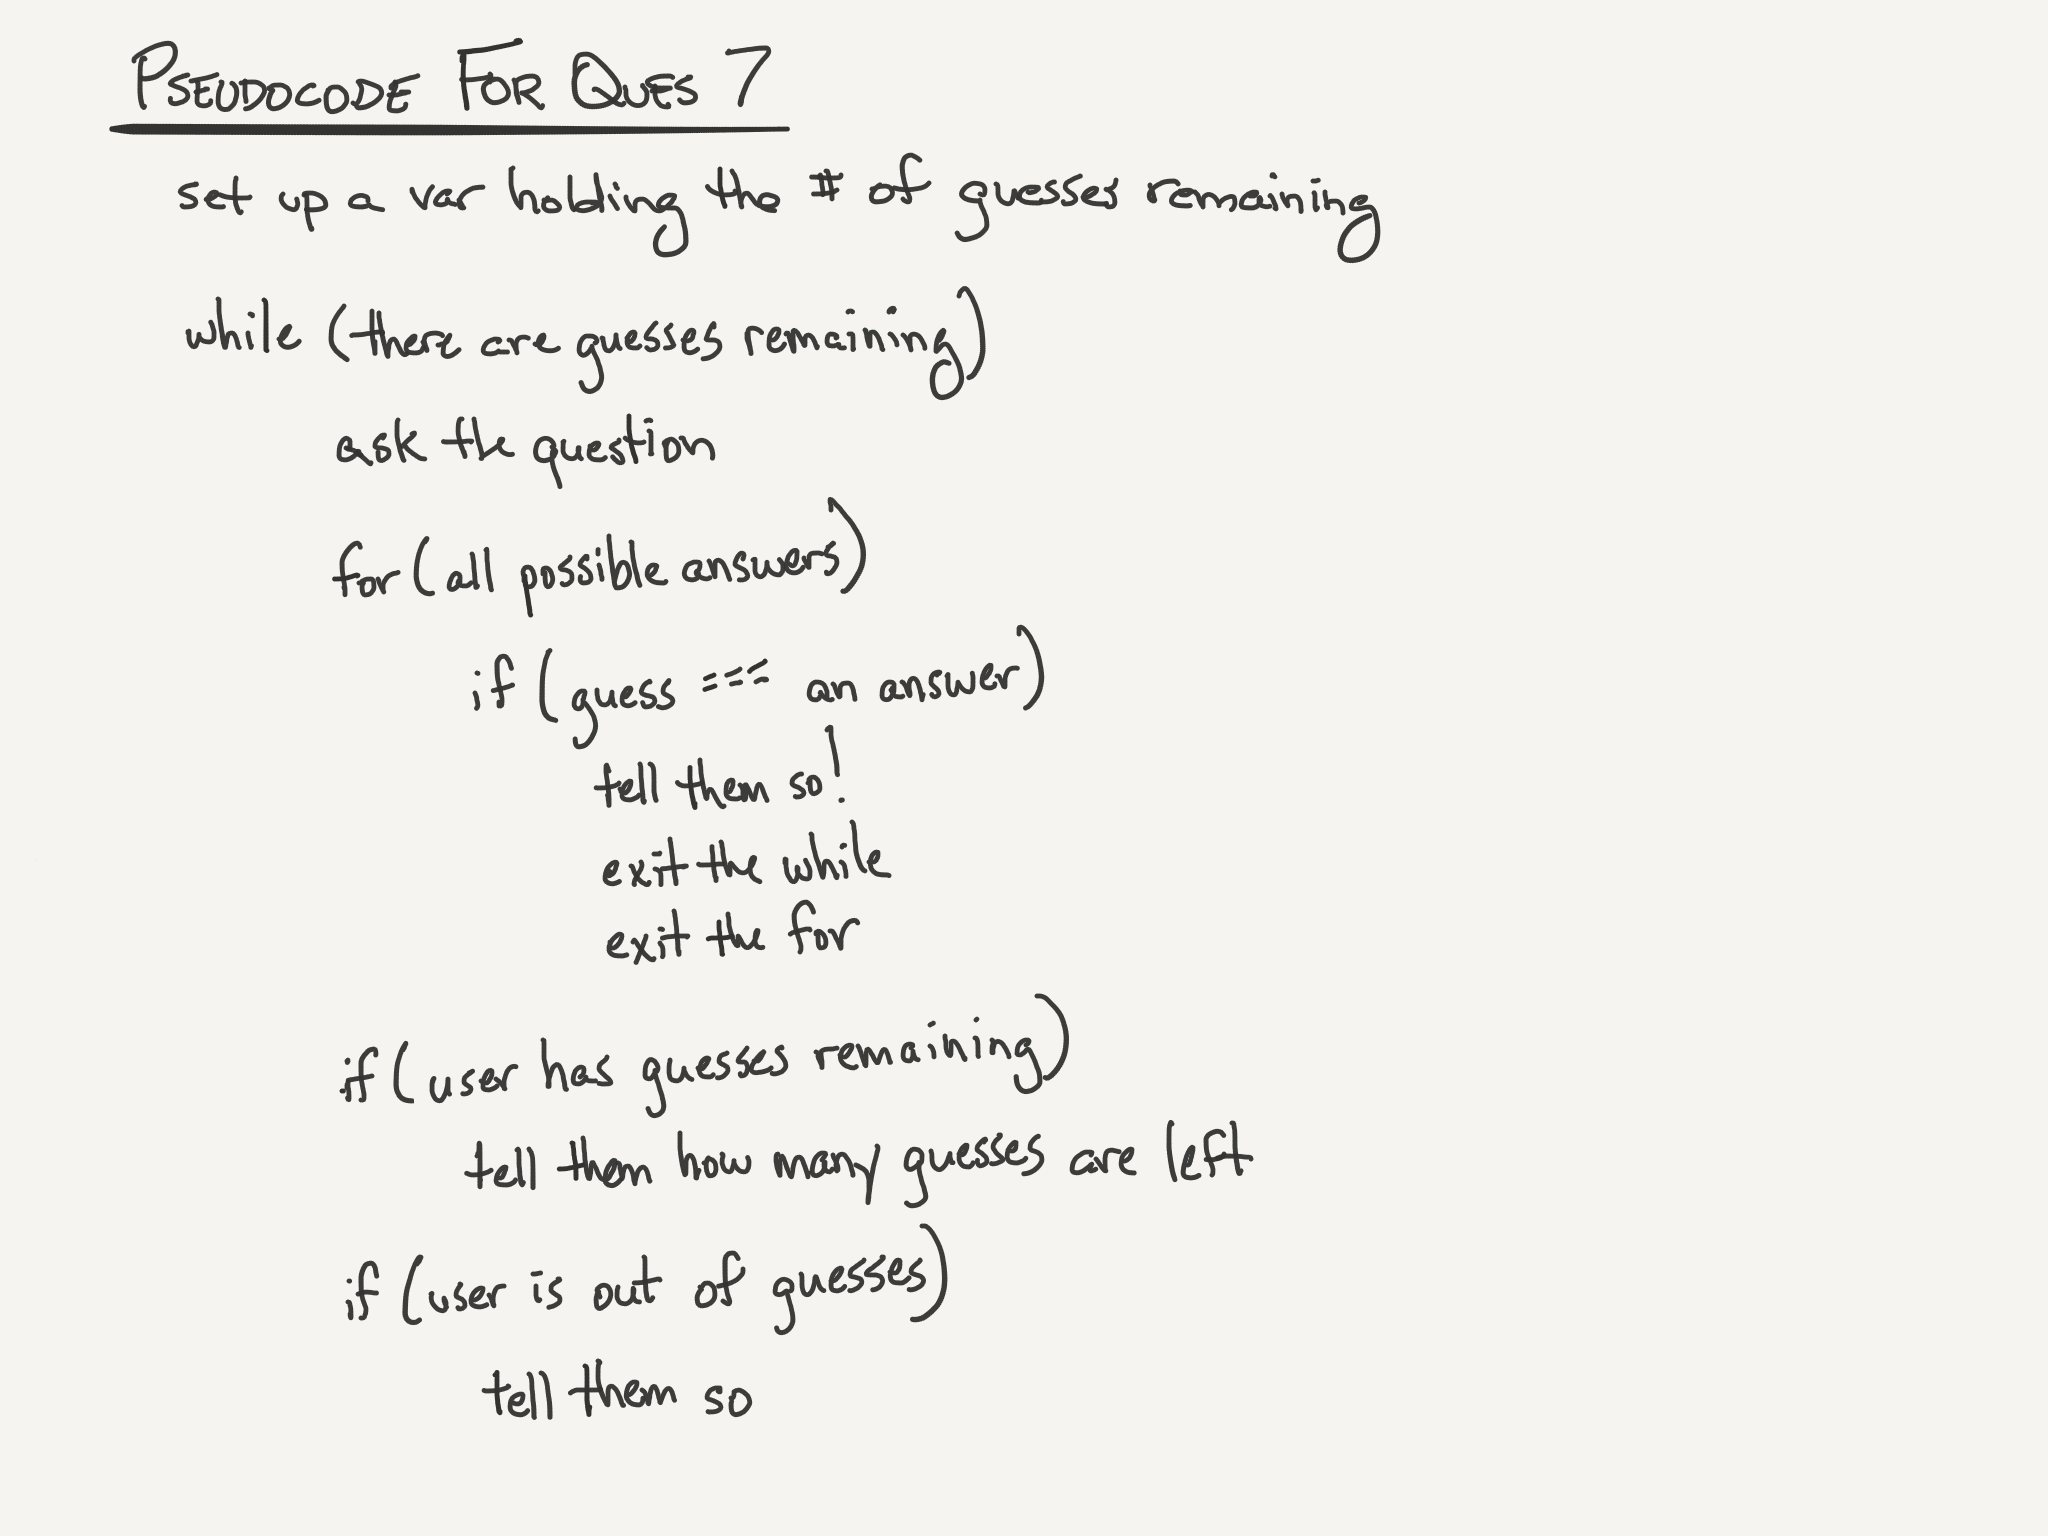 PSEUDOCODE FOR QUES 7
set up a var holding the # of guesses remaining
while (there are guesses remaining)
ask the question
for (all possible answers)
if (guess === an answer)
tell them so!
exit the while
exit the for
if (user has guesses remaining)
tell them how many guesses are left
if (user is out of guesses)
tell them so